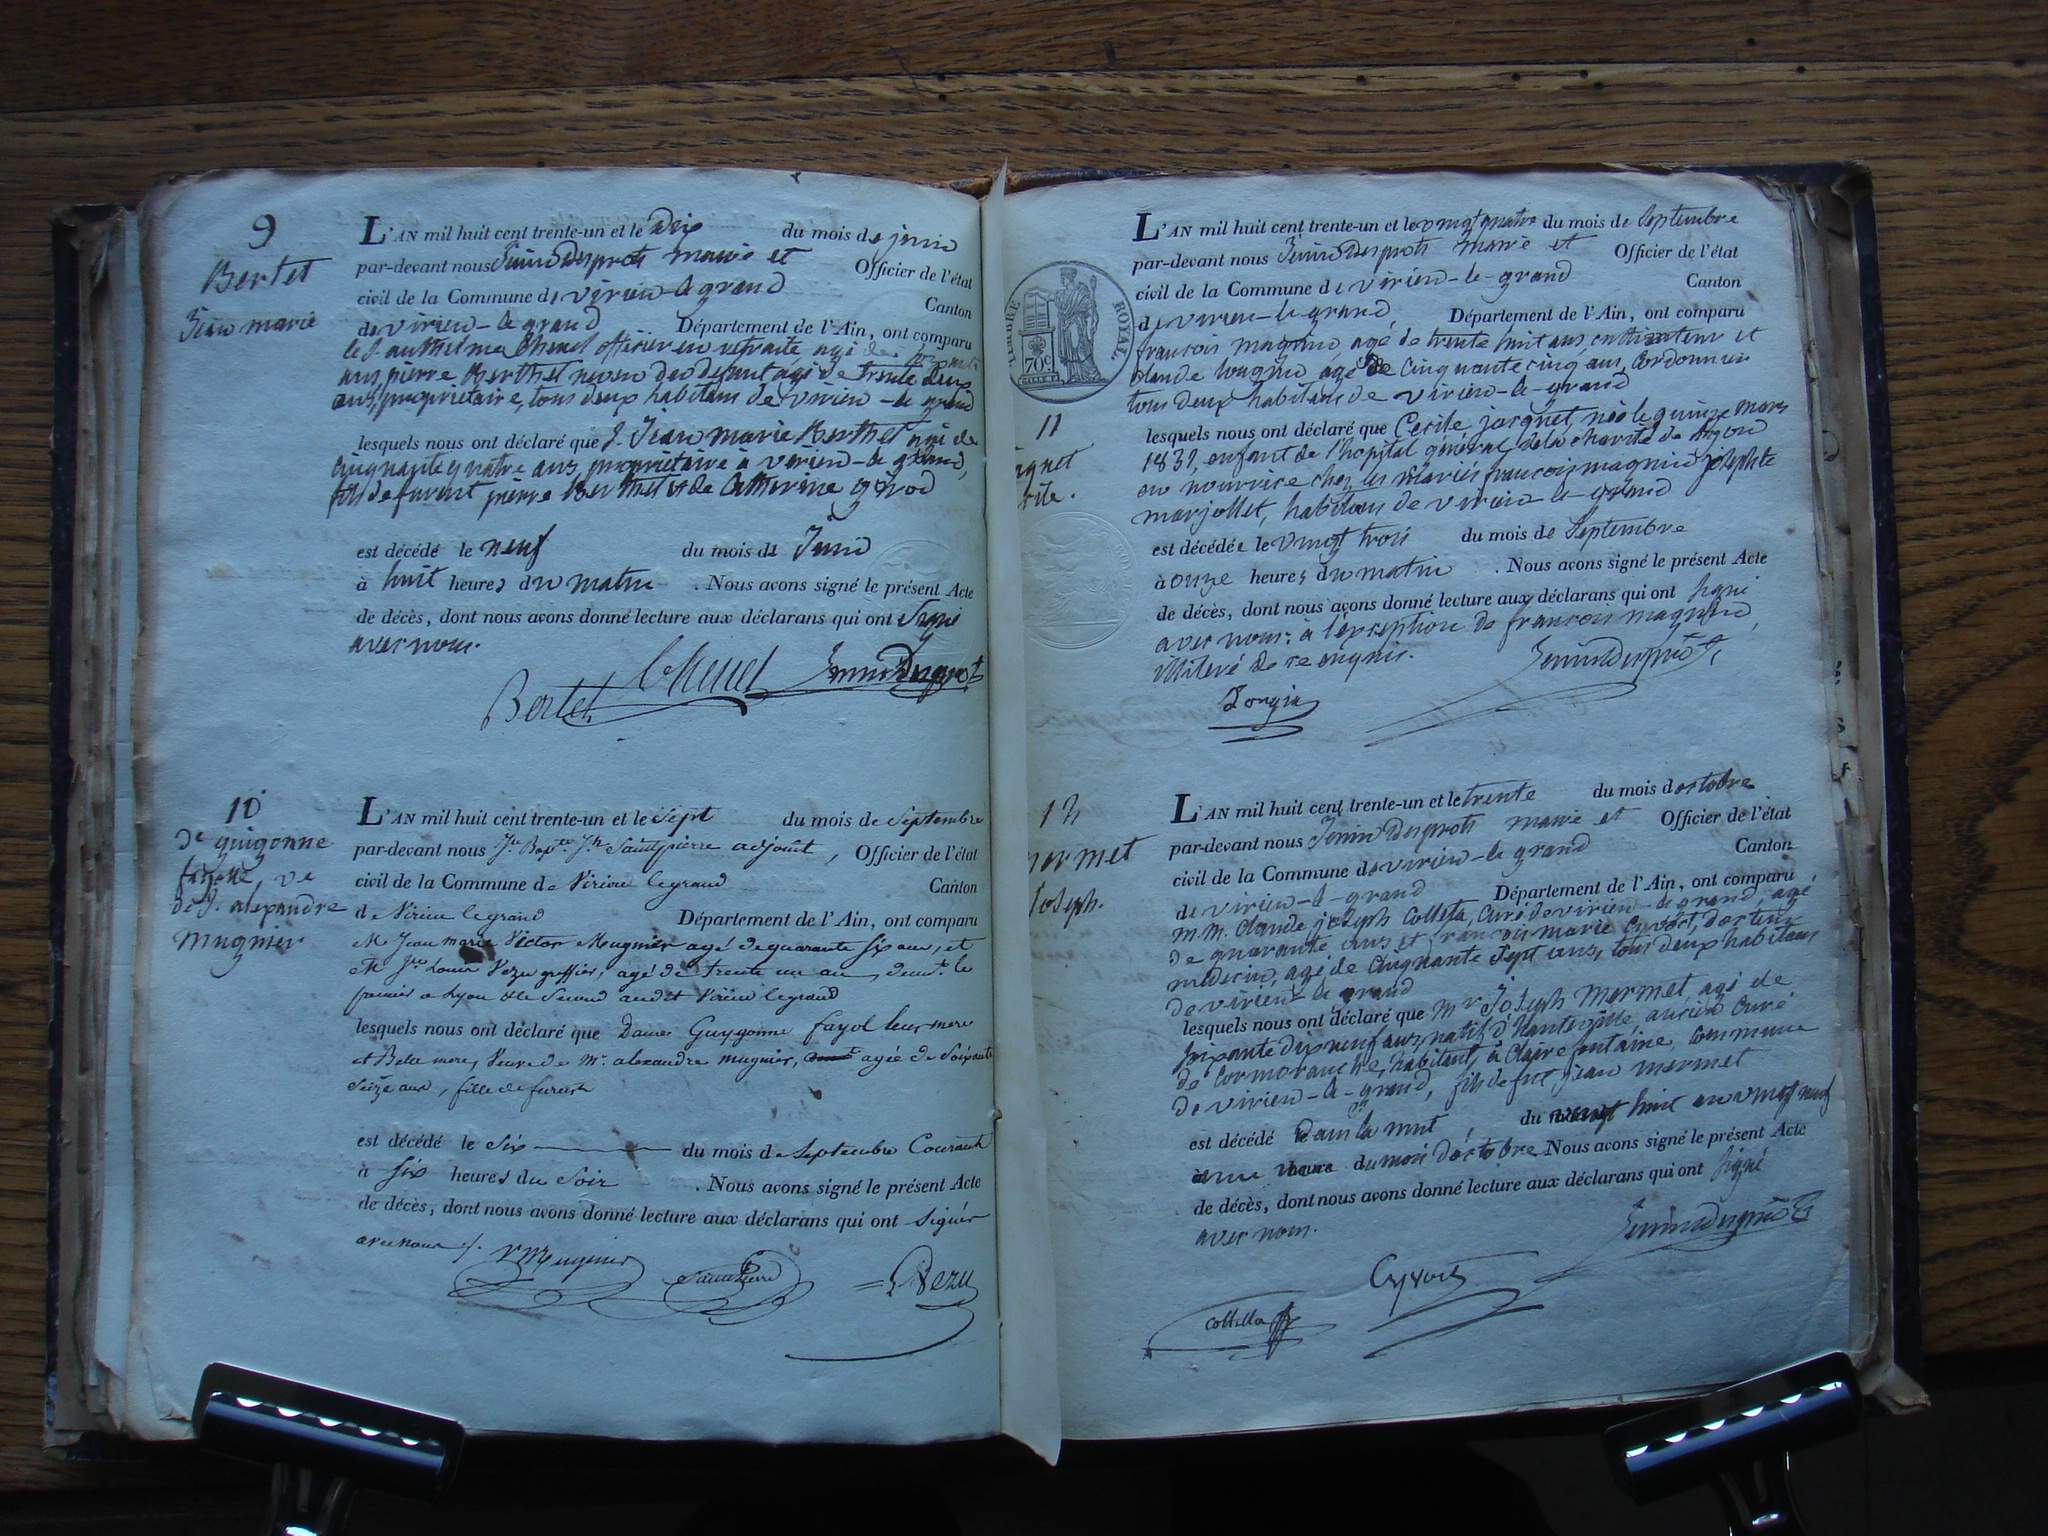 9
Bertet
Jean marie
L'AN mil huit cent trente-un et le Dix du mois de juin
par-devant nous Jenin Desprots maire et Officier de l'état
civil de la Commune de virieu-le-grand Canton
de virieu-le-grand Département de l'Ain, ont comparu
le S. anthelme Chenel officier en retraite agé de
ans, pierre Berthet neveu du défunt agé de trente deux
ans, propriétaire, tous deux habitans de virieu-le grand
lesquels nous ont déclaré que S. Jean marie Berthet agé de
Cinquante quatre ans, propriétaire à virieu-le grand,
fils de furent pierre Berthet et de Catherine
est décédé le neuf du mois de Juin
à huit heures du matin . Nous avons signé le présent Acte
de décès, dont nous avons donné lecture aux déclarans qui ont signé
avec nous.
Bertet Chenel Jenin Desprots
10
De guigonne
fayolle, ve
de S. alexandre
Mugnier
L'AN mil huit cent trente-un et le Sept du mois de Septembre
par-devant nous Jn Bapte Jh Saintpierre adjoint, Officier de l'état
civil de la Commune de Virieu legrand Canton
de Virieu legrand Département de l'Ain, ont comparu
Mr Jean marie Victor Mugnier agé de quarante six ans, et
Mr Louis Vezu greffier, agé de trente un an, demt. le
premier a Lyon & le Second audit Virieu legrand
lesquels nous ont déclaré que Dame Guygonne fayol leur mere
et Belle mere, Veuve de Mr. alexandre mugnier, agée de Soixante
Seize ans, fille de furent
est décédé le Six du mois de Septembre Courant
à Six heures du Soir . Nous avons signé le présent Acte
de décès, dont nous avons donné lecture aux déclarans qui ont Signés
avec nous ./.
VMugnier Saintpierre Vezu
TIMBRE ROYAL
70c
11
rquet
cile.
L'AN mil huit cent trente-un et le vingt quatre du mois de Septembre
par-devant nous Jenin Desprots maire et Officier de l'état
civil de la Commune de virieu-le-grand Canton
de virieu-le-grand Département de l'Ain, ont comparu
francois magnin agé de trente huit ans, cultivateur et
claude longin agé de Cinquante cinq ans, Cordonnier
tous deux habitans de virieu-le-grand
lesquels nous ont déclaré que Cecile jarquet, née le quinze mars
1831, enfant de l'hopital général de la charité de Lyon
en nourrice chez les Mariés francois magnin & josephte
marjollet, habitans de virieu-le-grand
est décédée le vingt trois du mois de Septembre
à onze heures du matin . Nous avons signé le présent Acte
de décès, dont nous avons donné lecture aux déclarans qui ont signé
avec nous: à l'exception de francois magnin,
illiteré de ce enquis.
Longin Jenin Desprots
12
mermet
Joseph.
L'AN mil huit cent trente-un et le trente du mois d'octobre
par-devant nous Jenin Desprots maire et Officier de l'état
civil de la Commune de virieu-le grand Canton
de virieu-le-grand Département de l'Ain, ont comparu
M.M. Claude joseph Colleta, Curé de virieu-le grand, agé
de quarante ans et francois marie Cyvoct, docteur
médecin, agé de Cinquante Sept ans, tous deux habitans
de virieu-le grand
lesquels nous ont déclaré que Mr Joseph Mermet, agé de
soixante dix neuf ans, natif d'hauteville ancien Curé
de Cormoranche, habitant à Claire fontaine, Commune
de virieu-le-grand, fils de fut jean mermet
est décédé dans la nuit du vingt huit au vingt neuf
du mois d'octobre Nous avons signé le présent Acte
de décès, dont nous avons donné lecture aux déclarans qui ont signé
avec nous.
Jenin Desprots
Cyvoct
Colleta